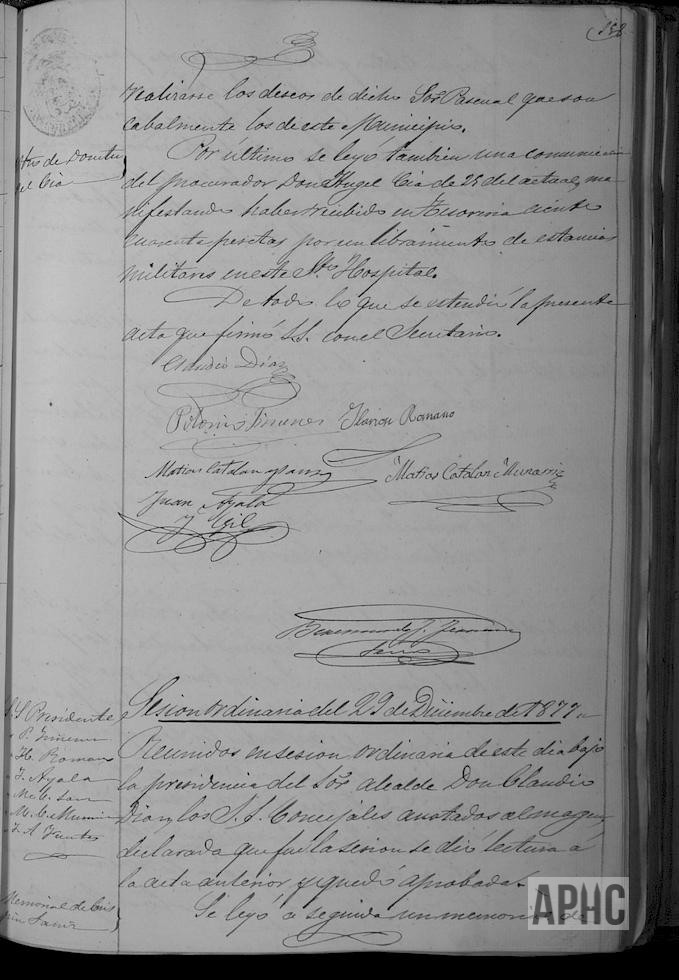 158
realizarse los deseos de dicho Sor Pascual que son
cabalmente los de este Municipio.
Por ultimo se leyó tambien una comunicacion
del procurador Don Angel Cia de 25 del actual, ma
nifestando haber recibido en Tesoreria ciento
cuarenta pesetas por un libramiento de estancias
militares en este Sto Hospital.
De todo lo que se estendió la presente
acta que firmó S.S. con el Secretario.
Claudio Diaz
Petonio Jimenez Ilarion Romano
Matias Catalan y Sanz
Matias Catalan Munarriz
Juan Ayala
y Gil
Sesion ordinaria del 29 de Diciembre de 1877
S. S. Presidente
P. Jimenez
H. Romano
J. Ayala
M. C. Sanz
M. C. Munarriz
J. A. Fuentes
Reunidos en sesion ordinaria de este dia bajo
la presidencia del Sor alcalde Don Claudio
Diaz, los S. S. Concejales anotados al margen,
declarada que fue la sesion se dió lectura a
la acta anterior y quedó aprobada.
Memorial de
Se leyó a seguida un memorial de
APHC